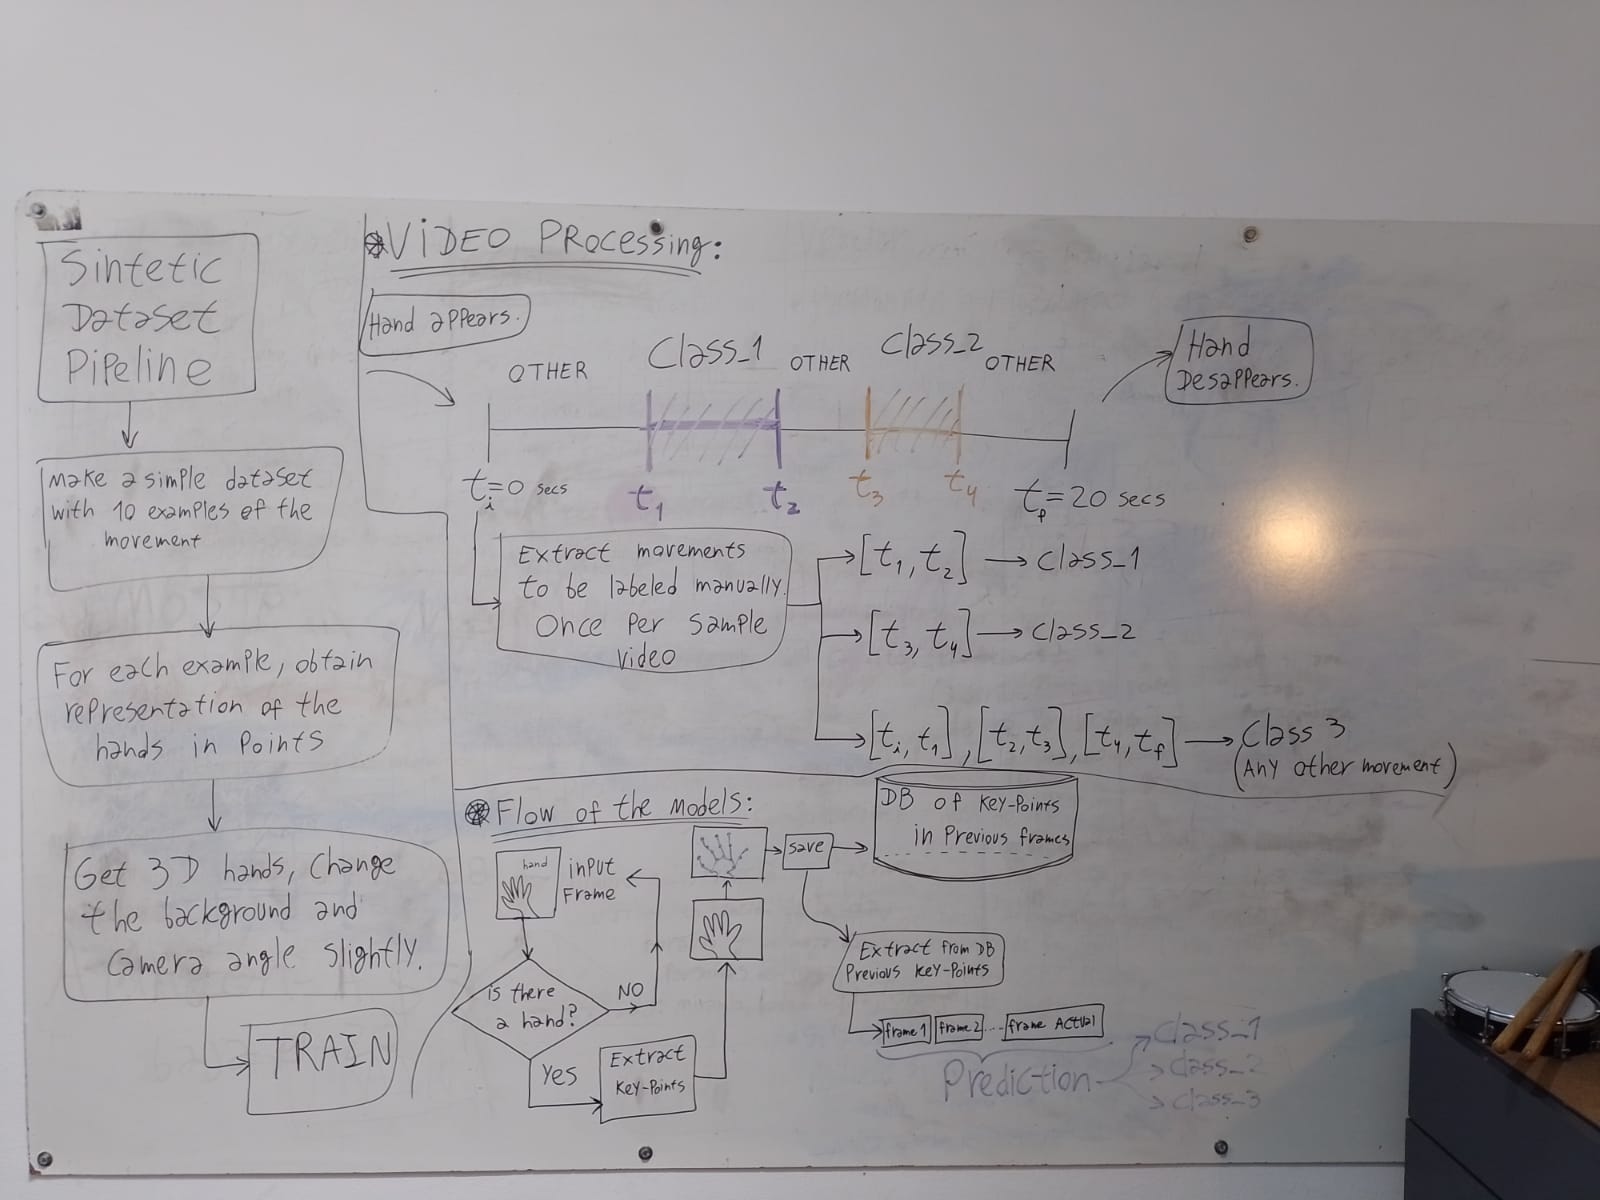 Sintetic
Dataset
Pipeline
Make a simple dataset
with 10 examples of the
movement
For each example, obtain
representation of the
hands in Points
Get 3D hands, change
the background and
camera angle slightly.
TRAIN
VIDEO PROCESSING:
Hand appears.
OTHER
Class_1
OTHER
Class_2
OTHER
Hand
Desappears.
ti=0 secs
t1
t2
t3
t4
tf=20 secs
Extract movements
to be labeled manually.
Once per sample
video
[t1, t2] → Class_1
[t3, t4] → Class_2
[ti, t1], [t2, t3], [t4, tf] → Class 3
(Any other movement)
Flow of the models:
hand
input
Frame
is there
a hand?
NO
Yes
Extract
Key-Points
save
DB of Key-Points
in Previous frames
Extract from DB
Previous Key-Points
frame 1
frame 2
....
frame Actual
Prediction
Class_1
class_2
class_3